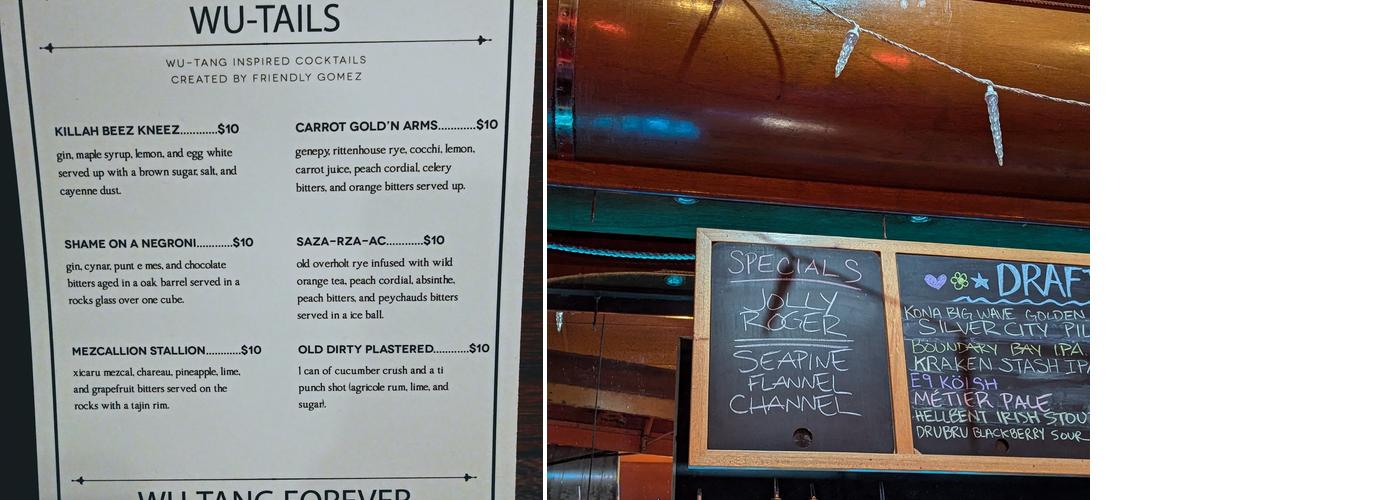 WU-TAILS
WU-TANG INSPIRED COCKTAILS
CREATED BY FRIENDLY GOMEZ
KILLAH BEEZ KNEEZ............$10
gin, maple syrup, lemon, and egg white
served up with a brown sugar, salt, and
cayenne dust.
SHAME ON A NEGRONI............$10
gin, cynar, punt e mes, and chocolate
bitters aged in a oak barrel served in a
rocks glass over one cube.
MEZCALLION STALLION............$10
xicaru mezcal, chareau, pineapple, lime,
and grapefruit bitters served on the
rocks with a tajin rim.
CARROT GOLD'N ARMS............$10
genepy, rittenhouse rye, cocchi, lemon,
carrot juice, peach cordial, celery
bitters, and orange bitters served up.
SAZA-RZA-AC............$10
old overholt rye infused with wild
orange tea, peach cordial, absinthe,
peach bitters, and peychauds bitters
served in a ice ball.
OLD DIRTY PLASTERED............$10
1 can of cucumber crush and a ti
punch shot (agricole rum, lime, and
sugar).
WU-TANG FOREVER
SPECIALS
JOLLY
ROGER
SEAPINE
FLANNEL
CHANNEL
DRAFT
KONA BIG WAVE GOLDEN
SILVER CITY PIL
BOUNDARY BAY IPA
KRAKEN STASH IPA
E9 KÖLSH
MÉTIER PALE
HELLBENT IRISH STOU
DRUBRU BLACKBERRY SOUR